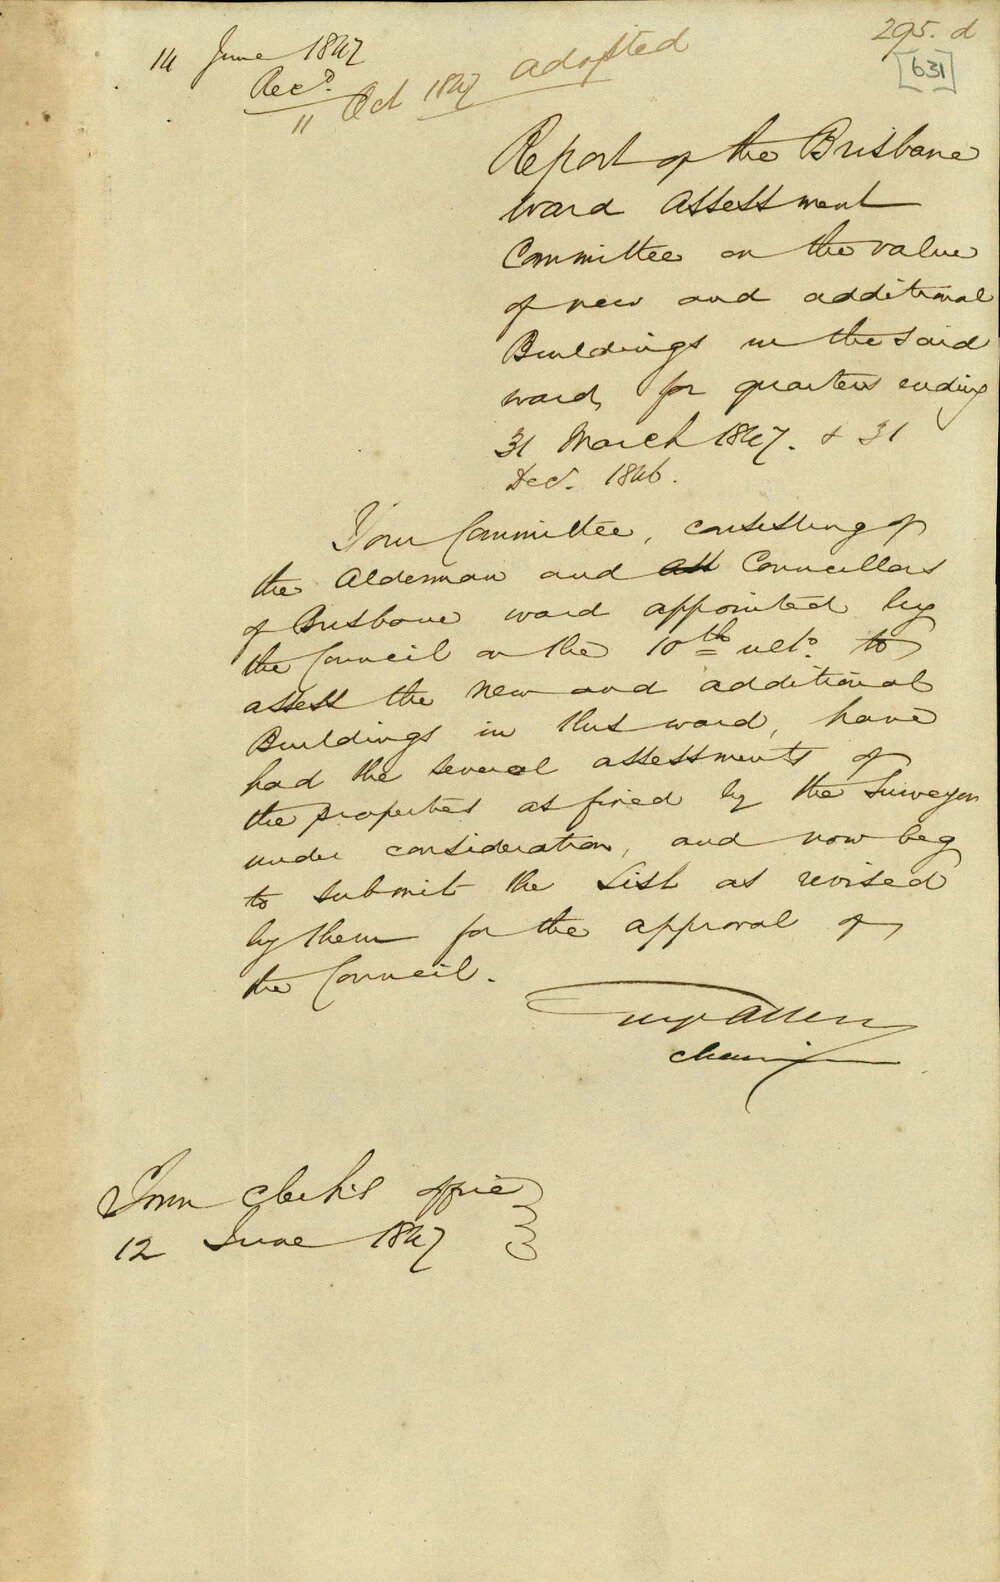 295. d
[631]
14 June 1847
Recd.
11 Oct 1847 adopted
Report of the Brisbane
ward Assessment
Committee on the value
of new and additional
Buildings in the said
ward, for quarters ending
31 March 1847. & 31
Decr. 1846.
Your Committee, consisting of
the Alderman and all Councillors
of Brisbane ward appointed by
the Council on the 10th ulto. to
assess the New and additional
Buildings in this ward, have
had the several assessments of
the properties as fixed by the Surveyor
under consideration, and now beg
to submit the List as revised
by them for the approval of
the Council.
Allen
Town Clerk's office
12 June 1847